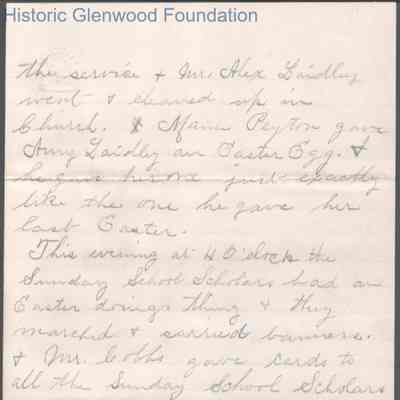 Historic Glenwood Foundation
the service & Mr. Alex Laidley
went & cleaned up in
Church. & Mamie Peyton gave
Amy Laidley an Easter Egg. &
he give her one just exactly
like the one he gave her
last Easter.
This evening at 4 O'clock the
Sunday School Scholars had an
Easter doings thing & they
marched & carried banners.
& Mr. Cobbs gave cards to
all the Sunday School Scholars